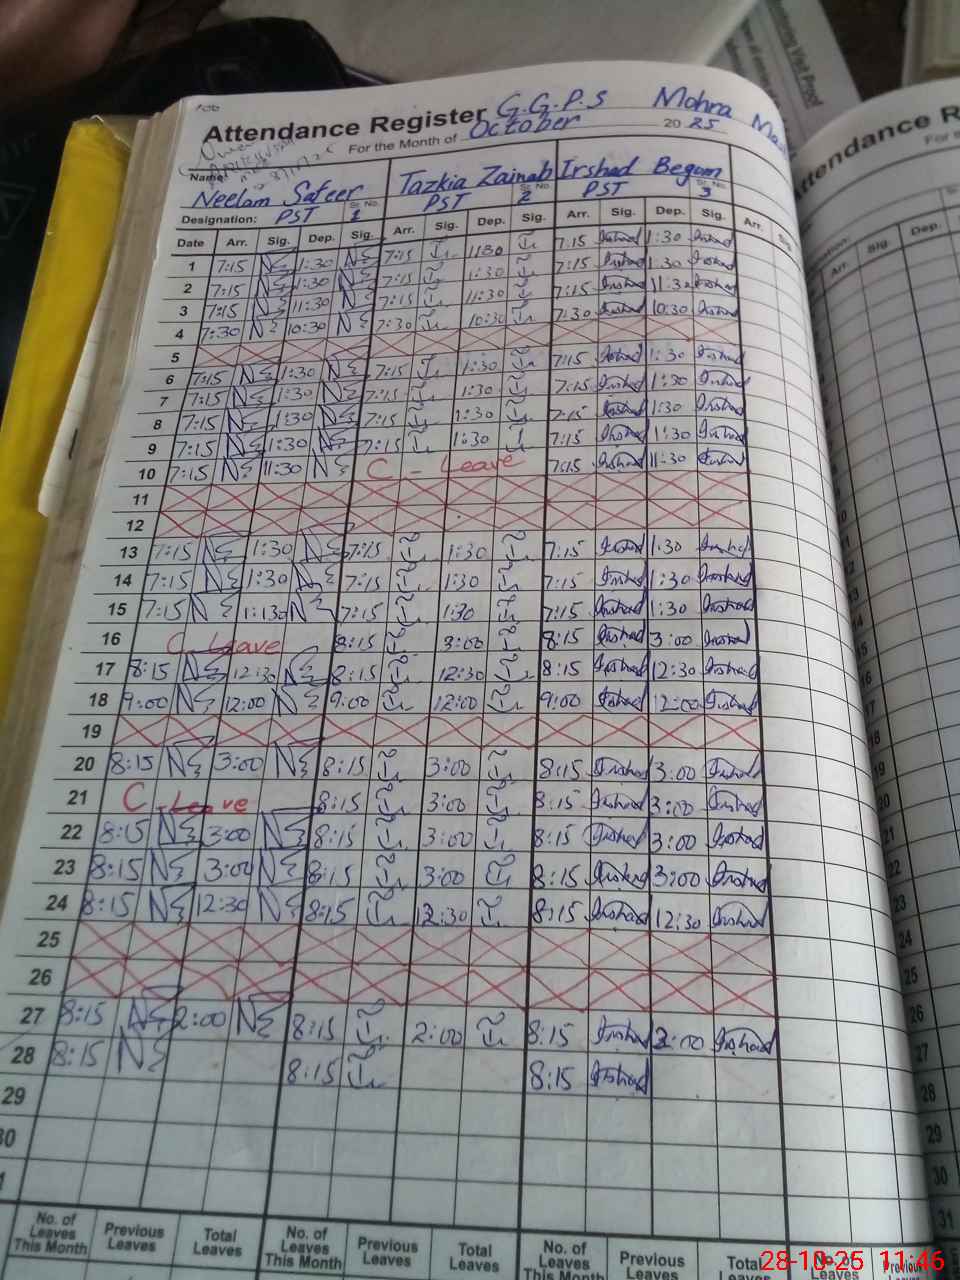 Attendance Register G.G.P.S Mohra
For the Month of October 2025
Name: Neelam Safeer Tazkia Zainab Irshad Begum
Designation: PST Sr. No. 1 PST Sr. No. 2 PST Sr. No. 3
Date Arr. Sig. Dep. Sig. Arr. Sig. Dep. Sig. Arr. Sig. Dep. Sig. Arr.
1 7:15 NS 1:30 NS 7:15 1:30 7:15 Irshad 1:30 Irshad
2 7:15 NS 1:30 NS 7:15 1:30 7:15 Irshad 1:30 Irshad
3 7:15 NS 11:30 NS 7:15 11:30 7:15 Irshad 11:30 Irshad
4 7:30 NS 10:30 NS 7:30 10:30 7:30 Irshad 10:30 Irshad
5
6 7:15 NS 1:30 NS 7:15 1:30 7:15 Irshad 1:30 Irshad
7 7:15 NS 1:30 NS 7:15 1:30 7:15 Irshad 1:30 Irshad
8 7:15 NS 1:30 NS 7:15 1:30 7:15 Irshad 1:30 Irshad
9 7:15 NS 1:30 NS 7:15 1:30 7:15 Irshad 11:30 Irshad
10 7:15 NS 11:30 NS C - Leave 7:15 Irshad 11:30 Irshad
11
12
13 7:15 NS 1:30 NS 7:15 1:30 7:15 Irshad 1:30 Irshad
14 7:15 NS 1:30 NS 7:15 1:30 7:15 Irshad 1:30 Irshad
15 7:15 NS 1:130 NS 7:15 1:30 7:15 Irshad 1:30 Irshad
16 C Leave 8:15 3:00 8:15 Irshad 3:00 Irshad
17 8:15 NS 12:30 NS 8:15 12:30 8:15 Irshad 12:30 Irshad
18 9:00 NS 12:00 NS 9:00 12:00 9:00 Irshad 12:00 Irshad
19
20 8:15 NS 3:00 NS 8:15 3:00 8:15 Irshad 3:00 Irshad
21 C - Leave 8:15 3:00 8:15 Irshad 3:00 Irshad
22 8:15 NS 3:00 NS 8:15 3:00 8:15 Irshad 3:00 Irshad
23 8:15 NS 3:00 NS 8:15 3:00 8:15 Irshad 3:00 Irshad
24 8:15 NS 12:30 NS 8:15 12:30 8:15 Irshad 12:30 Irshad
25
26
27 8:15 NS 2:00 NS 8:15 2:00 8:15 Irshad 2:00 Irshad
28 8:15 NS 8:15 8:15 Irshad
29
30
No. of Leaves This Month Previous Leaves Total Leaves No. of Leaves This Month Previous Leaves Total Leaves No. of Leaves Previous Leaves
28-10-25 11:46